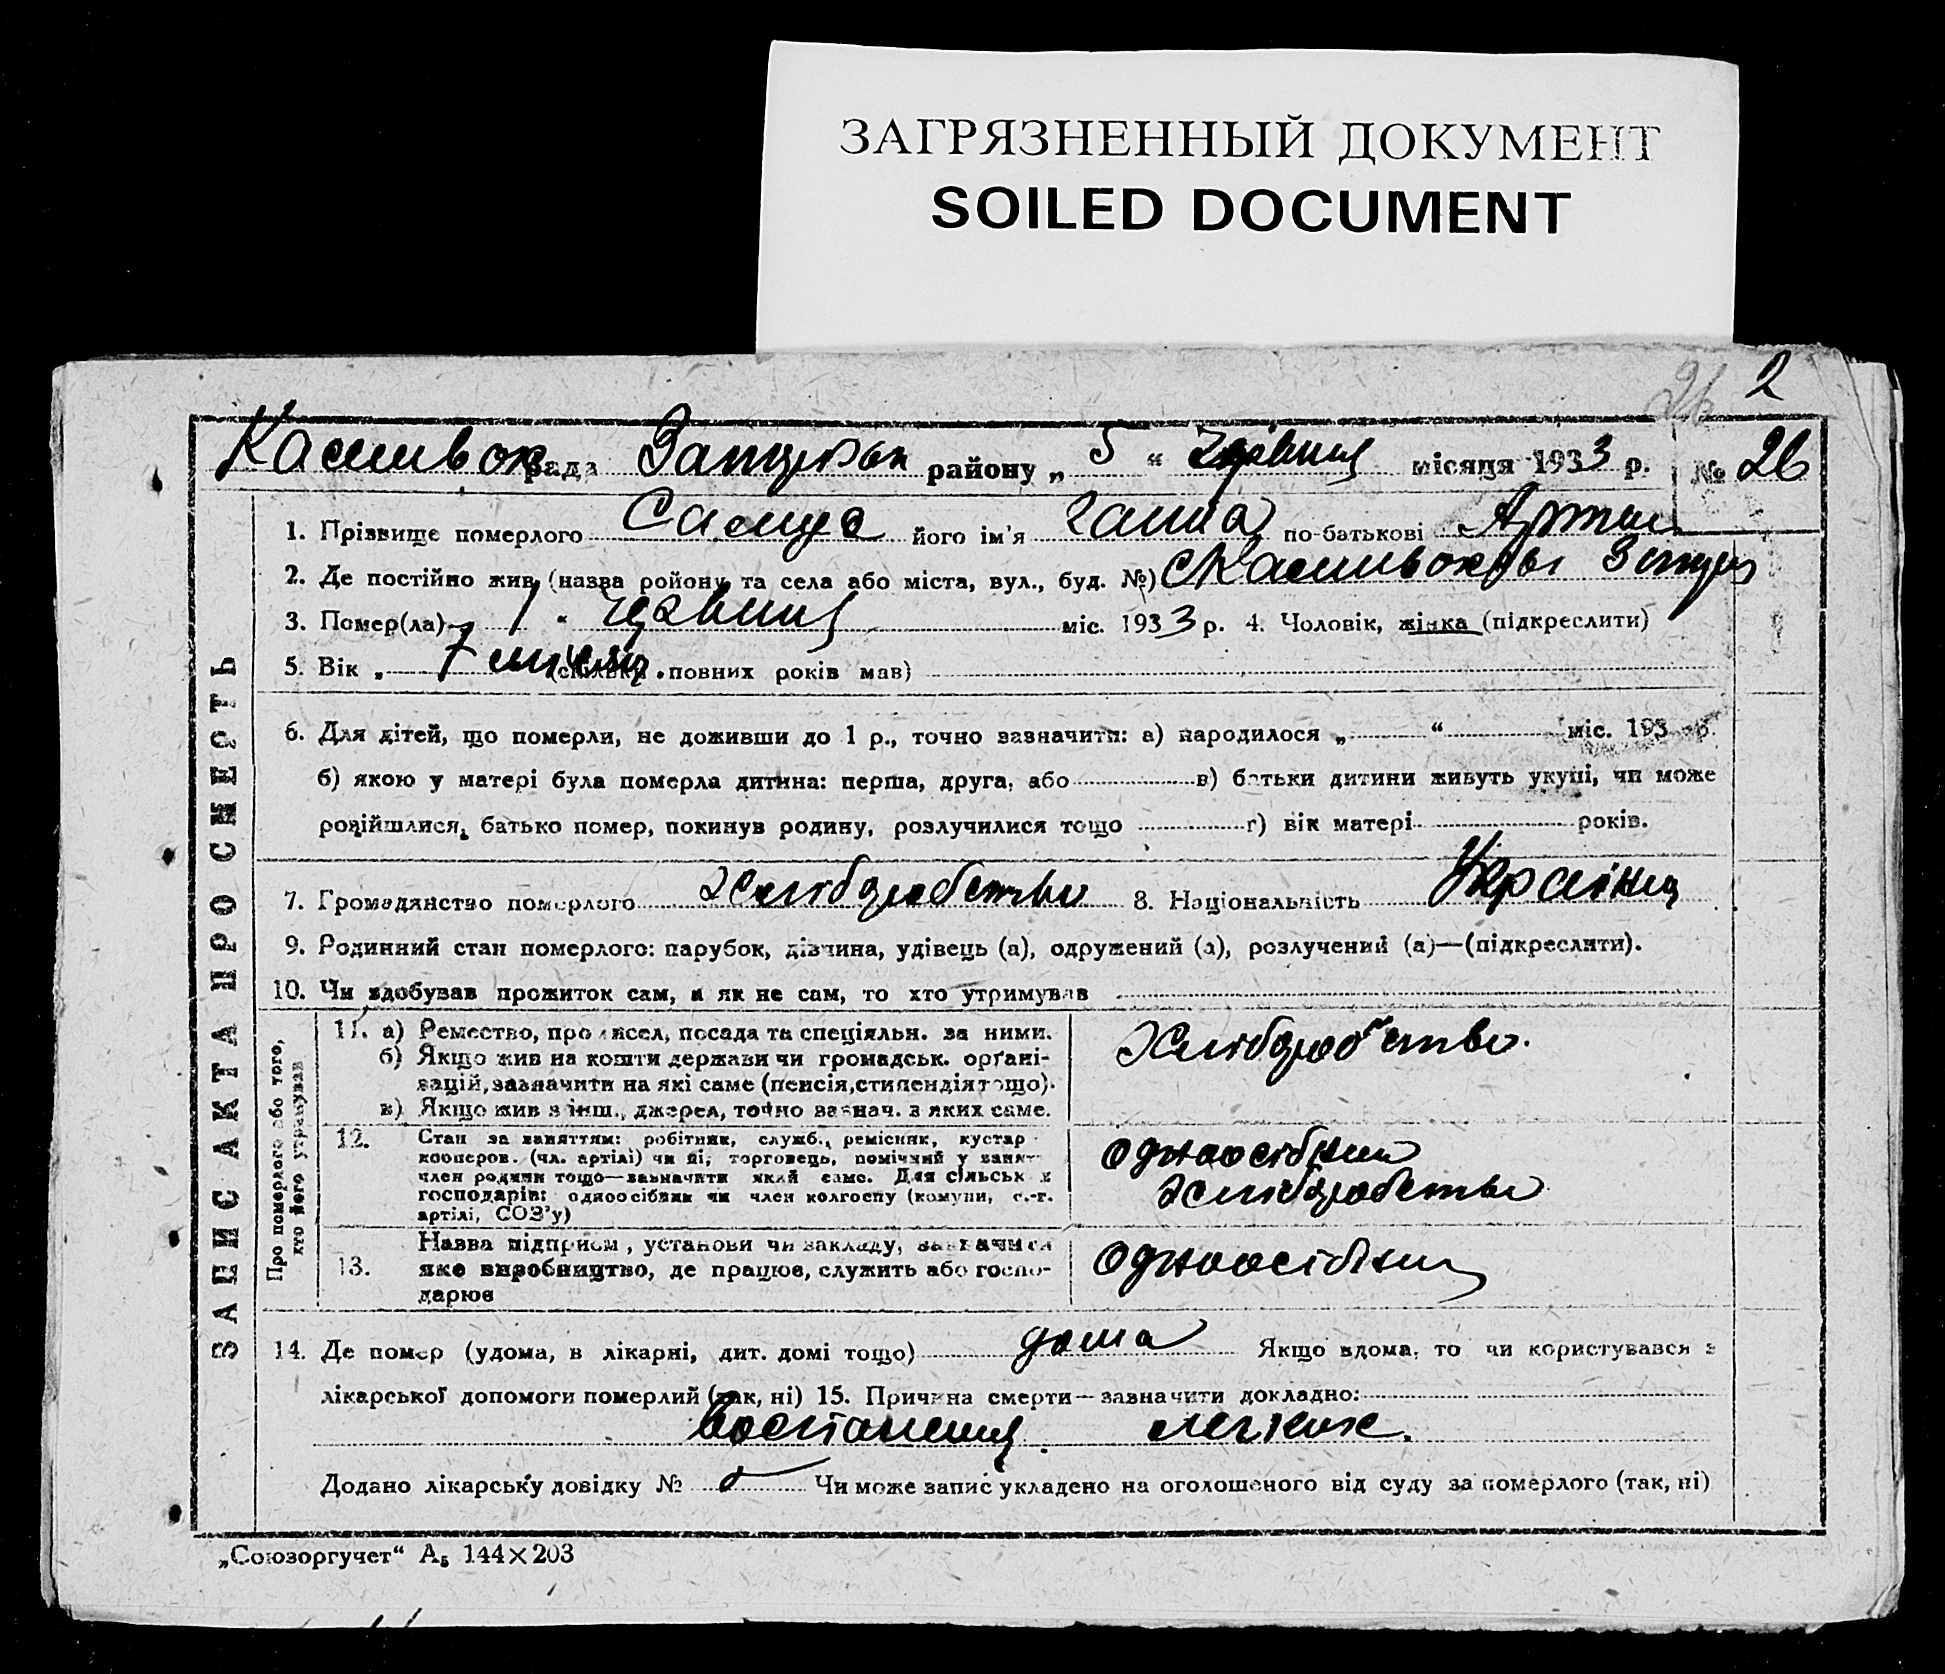 ЗАГРЯЗНЕННЫЙ ДОКУМЕНТ
SOILED DOCUMENT
26 2
рада району „ 5 “ червня місяця 1933 р. № 26
ЗАПИС АКТА ПРО СМЕРТЬ
1. Прізвище померлого Самус його ім'я Ганна по-батькові Артем
2. Де постійно жив (назва ройону та села або міста, вул., буд. №)
3. Помер(ла) 1 “ червня міс. 1933 р. 4. Чоловік, жінка (підкреслити)
5. Вік „ 7 (скільки повних років мав)
6. Для дітей, що померли, не доживши до 1 р., точно зазначити: а) народилося „ “ міс. 193 р.
б) якою у матері була померла дитина: перша, друга, або в) батьки дитини живуть укупі, чи може
розійшлися, батько помер, покинув родину, розлучилися тощо г) вік матері років.
7. Громадянство померлого хліборобство 8. Національність Україна
9. Родинний стан померлого: парубок, дівчина, удівець (а), одружений (а), розлучений (а)—(підкреслити).
10. Чи здобував прожиток сам, а як не сам, то хто утримував
Про померлого або того, хто його утримував
11. а) Ремество, промисел, посада та спеціяльн. за ними. Хліборобство.
б) Якщо жив на кошти держави чи громадськ. орґані-
зацій, зазначити на які саме (пенсія, стипендія тощо).
в) Якщо жив з інш., джерел, точно зазнач. з яких саме.
12. Стан за заняттям: робітник, служб., ремісник, кустар
кооперов. (чл. артілі) чи ні, торговець, помічний у занят-
член родини тощо—зазначити який саме. Для сільськ
господарів: одноосібник чи член колгоспу (комуни, с.-г.
артілі, СОЗ'у)
одноосібник
хліборобство
13. Назва підприєм, установи чи закладу, зазначити
яке виробництво, де працює, служить або госпо-
дарює
одноосібник
14. Де помер (удома, в лікарні, дит. домі тощо) дома Якщо вдома, то чи користувався з
лікарської допомоги померлий (так, ні) 15. Причина смерти—зазначити докладно:
легких.
Додано лікарську довідку № Чи може запис укладено на оголошеного від суду за померлого (так, ні)
„Союзоргучет“ А₅ 144×203